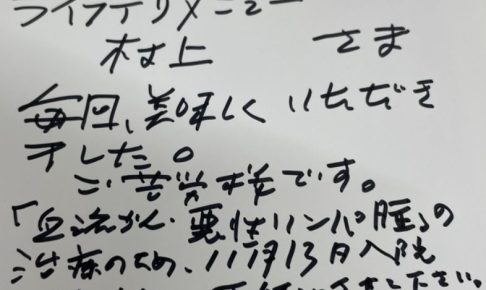 ライフデリメニュー
村上 さま
毎回、美味しくいただき
ました。
ご苦労様です。
「血液がん・悪性リンパ腫」の
治療のため、11月13日入院
ください。